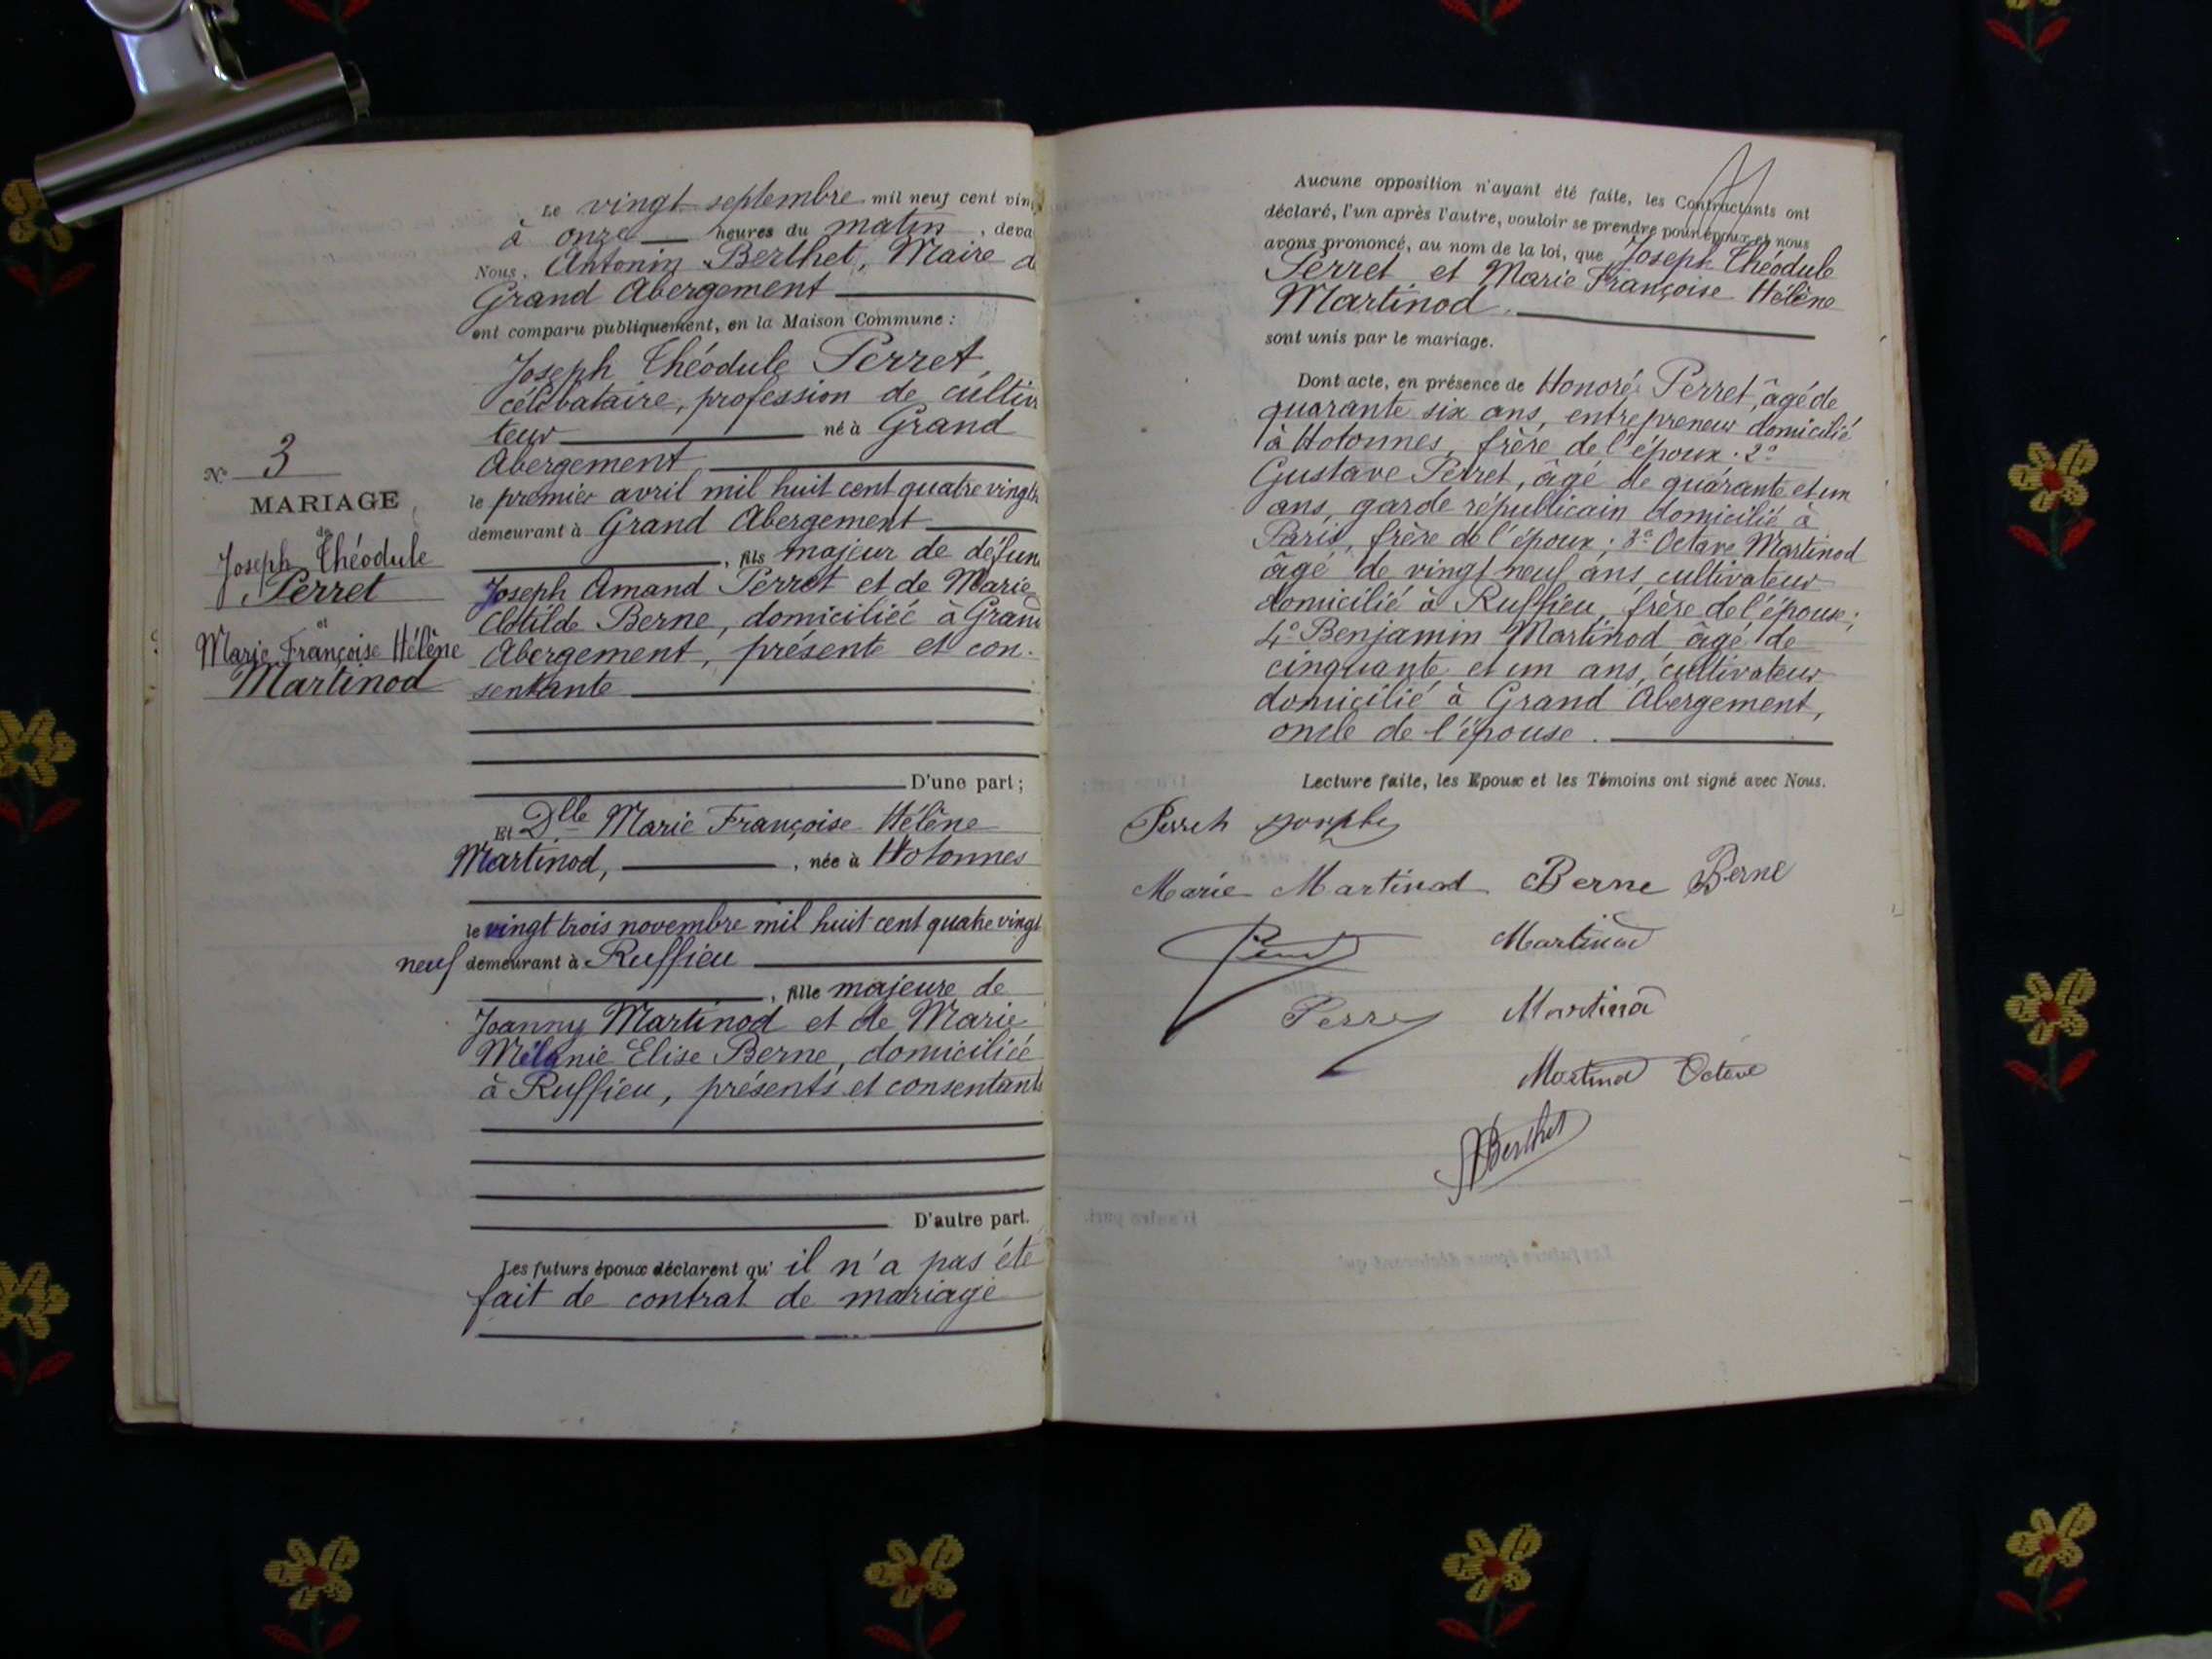 N° 3
MARIAGE
de
Joseph Théodule
Perret
et
Marie Françoise Hélène
Martinod
Le vingt septembre mil neuf cent vin
à onze heures du matin, deva
Nous, Antonin Berthet, Maire d
Grand Abergement
ont comparu publiquement, en la Maison Commune :
Joseph Théodule Perret,
célibataire, profession de cultiv
teur né à Grand
Abergement
le premier avril mil huit cent quatre vingt
demeurant à Grand Abergement
, fils majeur de défun
Joseph Amand Perret et de Marie
Clotilde Berne, domiciliée à Grand
Abergement, présente et con-
sentante
D'une part ;
Et Dlle Marie Françoise Hélène
Martinod, , née à Hotonnes
le vingt trois novembre mil huit cent quatre vingt
neuf demeurant à Ruffieu
, fille majeure de
Joanny Martinod et de Marie
Mélanie Elise Berne, domiciliée
à Ruffieu, présents et consentants
D'autre part.
Les futurs époux déclarent qu' il n'a pas été
fait de contrat de mariage
Aucune opposition n'ayant été faite, les Contractants ont
déclaré, l'un après l'autre, vouloir se prendre pour époux et nous
avons prononcé, au nom de la loi, que Joseph Théodule
Perret et Marie Françoise Hélène
Martinod.
sont unis par le mariage.
Dont acte, en présence de Honoré Perret, âgé de
quarante six ans, entrepreneur domicilié
à Hotonnes, frère de l'époux. 2°
Gustave Perret, âgé de quarante et un
ans, garde républicain domicilié à
Paris, frère de l'époux ; 3° Octave Martinod
âgé de vingt neuf ans, cultivateur
domicilié à Ruffieu, frère de l'épouse ;
4° Benjamin Martinod âgé de
cinquante et un ans, cultivateur
domicilié à Grand Abergement,
oncle de l'épouse.
Lecture faite, les Epoux et les Témoins ont signé avec Nous.
Perret Joseph
Marie Martinod Berne Berne
Martinod
Perret Martinod
Martinod Octave
ABerthet